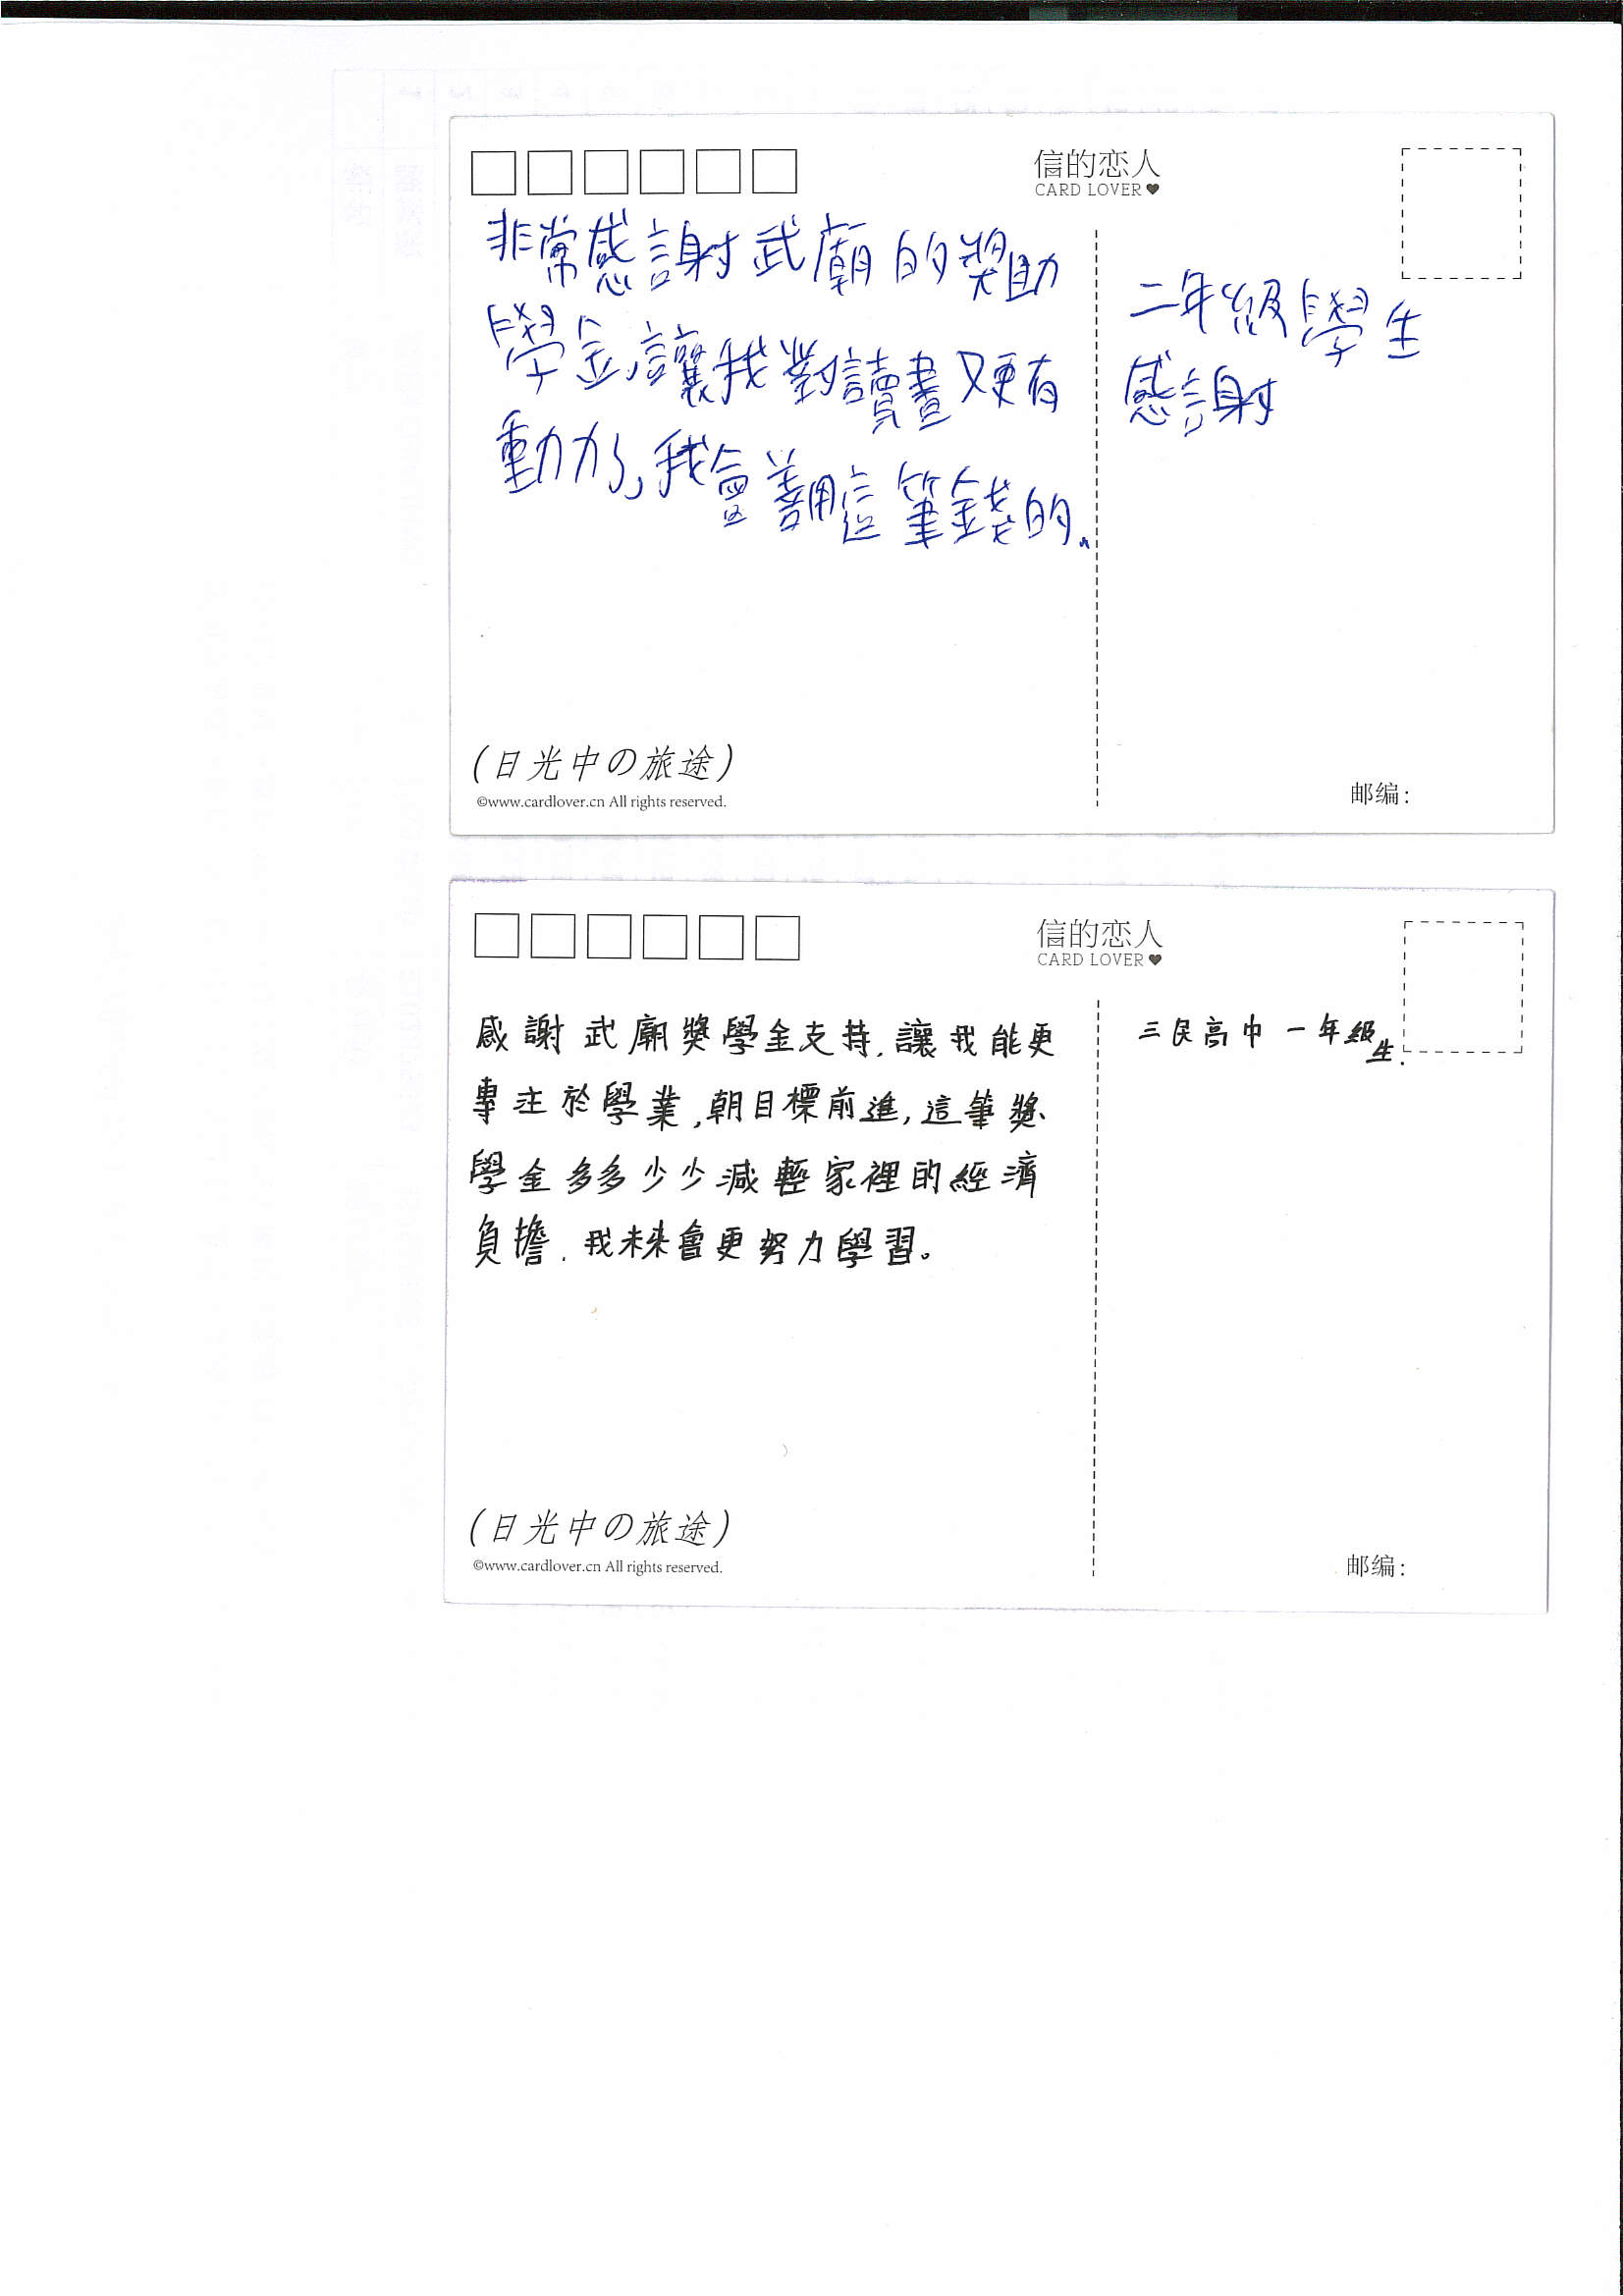 信的恋人
CARD LOVER♥
非常感謝武廟的獎助
學金,讓我對讀書又更有
動力了,我會善用這筆錢的。
二年級學生
感謝
(日光中の旅途)
©www.cardlover.cn All rights reserved.
邮编:
信的恋人
CARD LOVER♥
感謝武廟獎學金支持,讓我能更
專注於學業,朝目標前進,這筆獎
學金多多少少減輕家裡的經濟
負擔,我未來會更努力學習。
三民高中一年級生.
(日光中の旅途)
©www.cardlover.cn All rights reserved.
邮编: